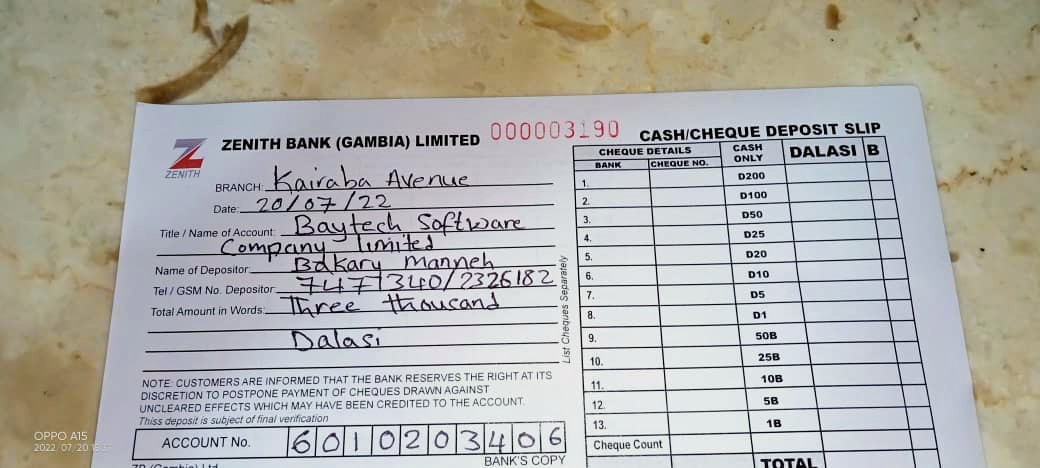 ZENITH BANK (GAMBIA) LIMITED 000003190 CASH/CHEQUE DEPOSIT SLIP
ZENITH
BRANCH: Kairaba Avenue
Date: 20/07/22
Title / Name of Account: Baytech Software
Company limited
Name of Depositor: Bakary Manneh
Tel / GSM No. Depositor: 7477340/2326182
Total Amount in Words: Three thousand
Dalasi
NOTE: CUSTOMERS ARE INFORMED THAT THE BANK RESERVES THE RIGHT AT ITS
DISCRETION TO POSTPONE PAYMENT OF CHEQUES DRAWN AGAINST
UNCLEARED EFFECTS WHICH MAY HAVE BEEN CREDITED TO THE ACCOUNT.
Thiss deposit is subject of final verification
ACCOUNT No. 6010203406
BANK'S COPY
List Cheques Separately
CHEQUE DETAILS CASH ONLY DALASI B
BANK CHEQUE NO.
1. D200
2. D100
3. D50
4. D25
5. D20
6. D10
7. D5
8. D1
9. 50B
10. 25B
11. 10B
12. 5B
13. 1B
Cheque Count
TOTAL
OPPO A15
2022/07/20